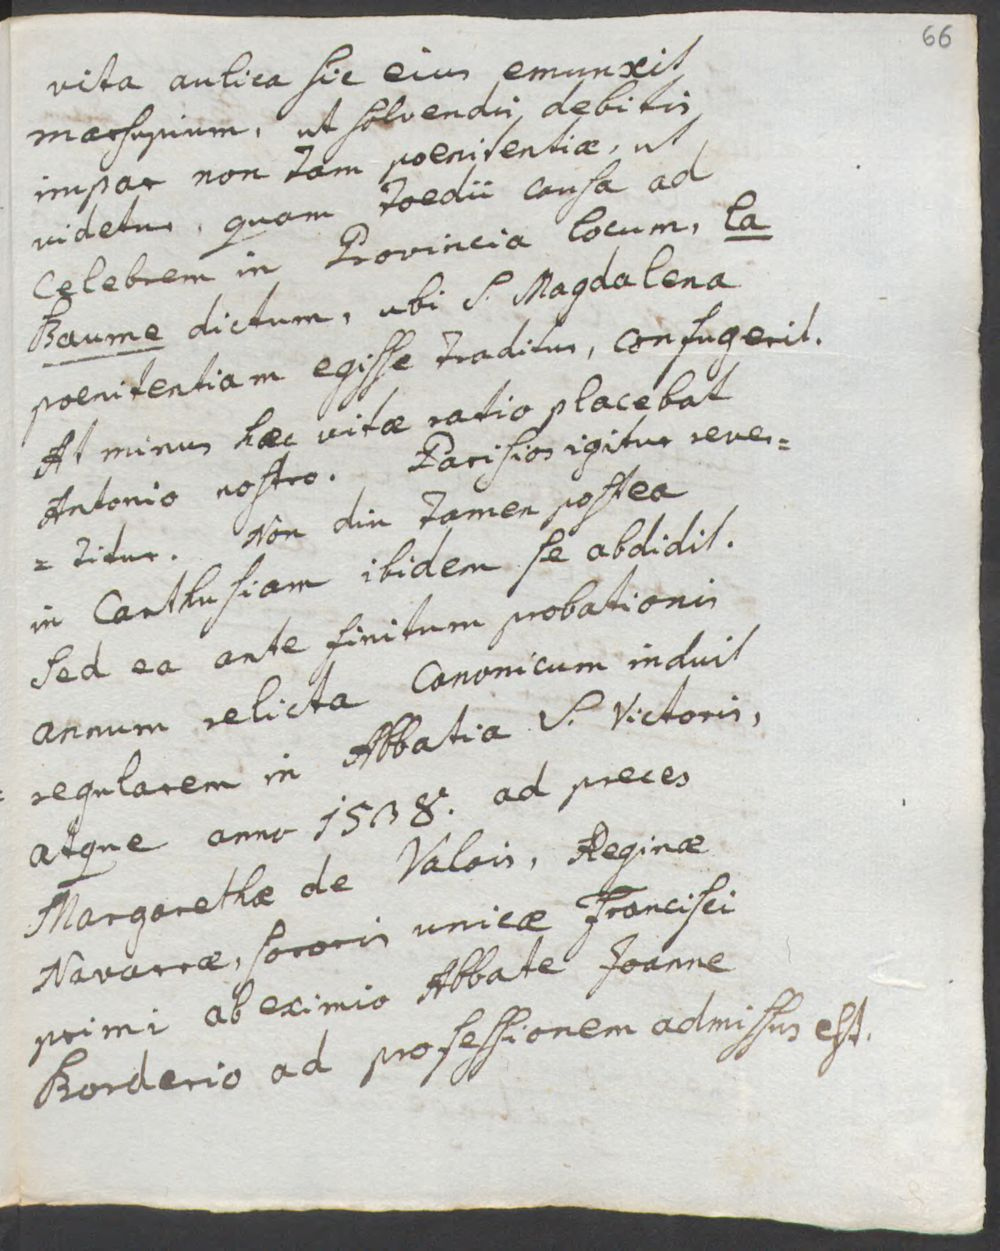 66
vita aulica sic eius emunxit
marsupium, ut solvendis debitis
impar non tam poenitentiæ, ut
videtur, quam toedii causa ad
celebrem in Provincia locum, la
Baume dictum, ubi S. Magdalena
poenitentiam egisse traditur, confugerit.
At minus hæc vitæ ratio placebat
Antonio nostro. Parisios igitur rever=
= titur. Non diu tamen postea
in Carthusiam ibidem se abdidit.
Sed ea ante finitum probationis
annum relicta Canonicum induit
regularem in Abbatia S. Victoris,
atque anno 1538. ad preces
Margarethæ de Valois, Reginæ
Navarræ, sororis unicæ Francisci
primi ab eximio Abbate Joanne
Borderio ad professionem admissus est.